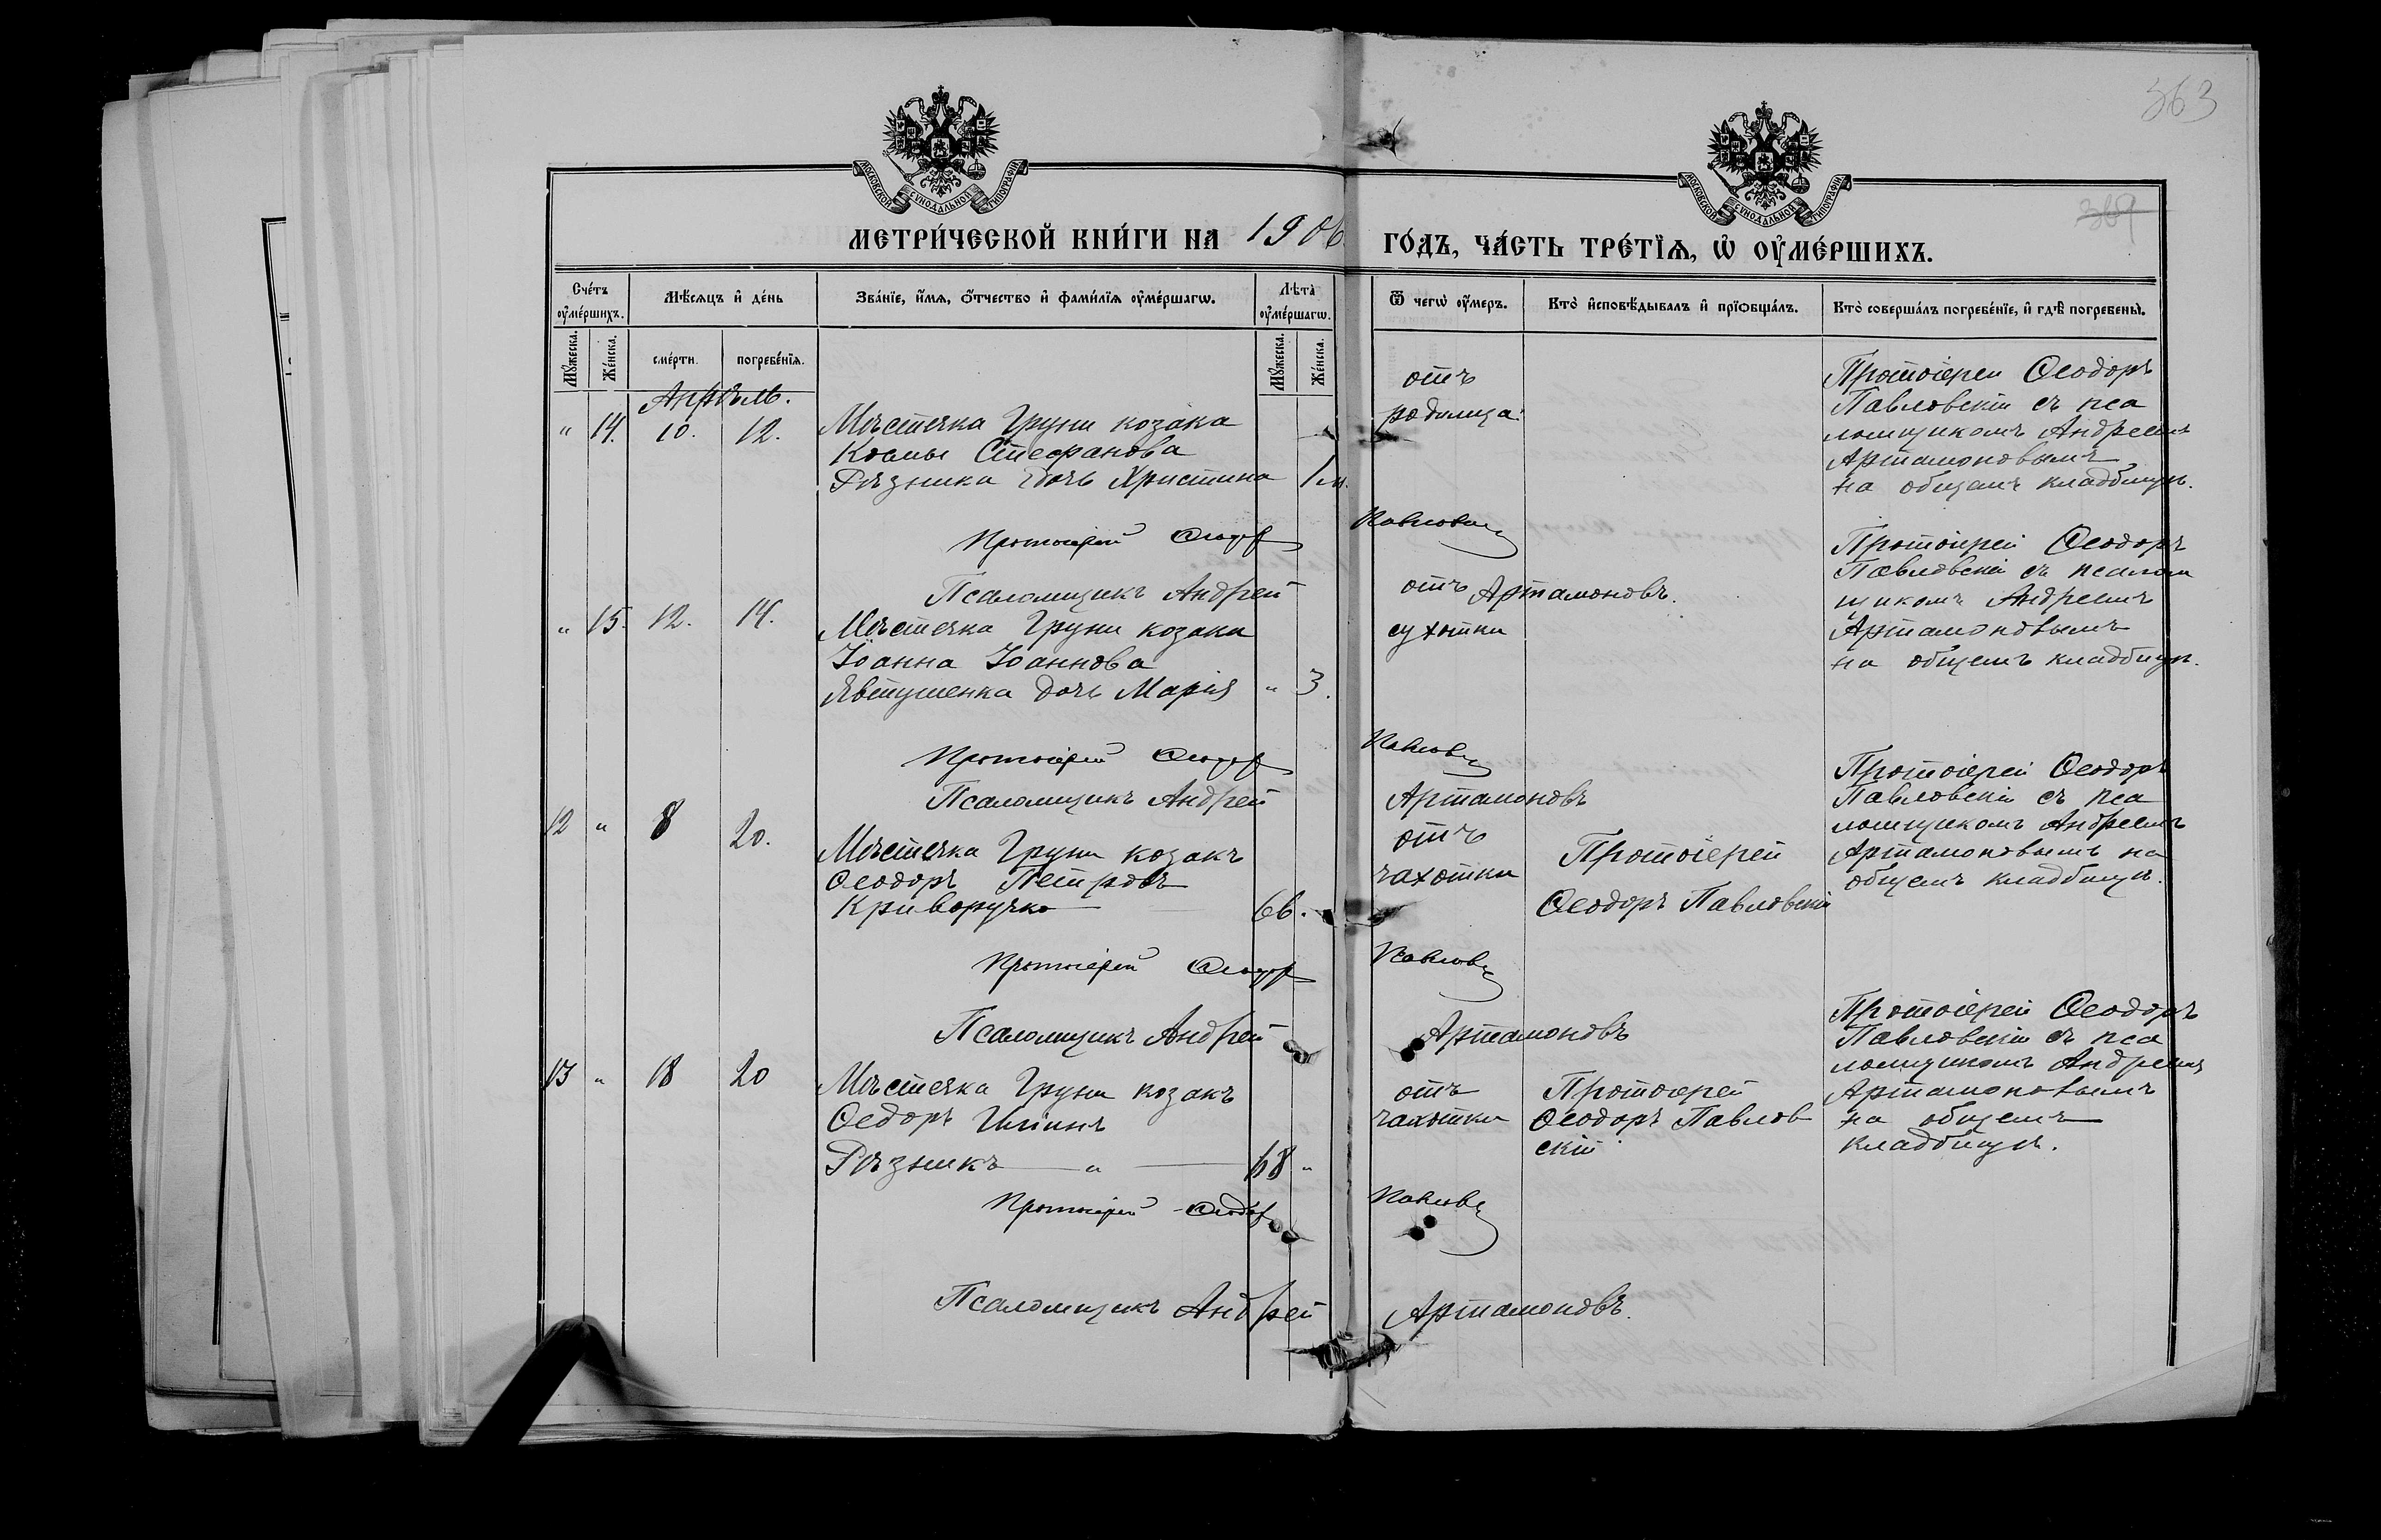 363
369
МОСКОВСКОЙ СѴНОДАЛЬНОЙ ТИПОГРАФІИ
МОСКОВСКОЙ СѴНОДАЛЬНОЙ ТИПОГРАФІИ
МЕТРИ́ЧЕСКОЙ КНИ́ГИ НА 1906 ГО́ДЪ, ЧА́СТЬ ТРЕ́ТЇѦ, Ѡ҆ ОУ҆МЕ́РШИХЪ.
Сче́тъ оу҆ме́ршихъ.
Мѣ́сѧцъ и҆ де́нь
Зва́нїе, и҆́мѧ, ѻ҆́тчество и҆ фами́лїѧ оу҆ме́ршагѡ.
Лѣта̀ оу҆ме́ршагѡ.
Ѿ чегѡ̀ оу҆́меръ.
Кто̀ и҆сповѣ́дывалъ и҆ прїѡбща́лъ.
Кто̀ соверша́лъ погребе́нїе, и҆ гдѣ̀ погребены̀.
Мꙋ́жеска.
Же́нска.
сме́рти.
погребе́нїѧ.
Мꙋ́жеска.
Же́нска.
Апрѣль.
" 14. 10. 12.
Мѣстечка Груни козака
Космы Стефанова
Рѣзника дочь Христина 1 м.
отъ
родимца.
Протоіерей Ѳеодоръ
Павловскій съ пса
ломщикомъ Андреемъ
Артамоновымъ
на общемъ кладбищѣ.
Протоіерей Ѳеодор Павловскій
Псаломщикъ Андрей Артамоновъ.
" 15. 12. 14.
Мѣстечка Груни козака
Іоанна Іоаннова
Явтушенка дочь Марія " 3.
отъ
сухотки
Протоіерей Ѳеодоръ
Павловскій съ псалом
щикомъ Андреемъ
Артамоновымъ
на общемъ кладбищѣ.
Протоіерей Ѳеодор Павловскій
Псаломщикъ Андрей Артамоновъ
12 " 8 20.
Мѣстечка Груни козакъ
Ѳеодоръ Петровъ
Криворучко 66.
отъ
чахотки
Протоіерей
Ѳеодоръ Павловскій
Протоіерей Ѳеодоръ
Павловскій съ пса
ломщикомъ Андреемъ
Артамоновымъ на
общемъ кладбищѣ.
Протоіерей Ѳеодор Павловскій
Псаломщикъ Андрей Артамоновъ
13 " 18 20
Мѣстечка Груни козакъ
Ѳедоръ Иліинъ
Рѣзникъ " 68 "
отъ
чахотки
Протоіерей
Ѳеодоръ Павлов
скій
Протоіерей Ѳеодоръ
Павловскій съ пса
ломщикомъ Андреемъ
Артамоновымъ
на общемъ
кладбищѣ.
Протоіерей Ѳеодор Павловскій
Псаломщикъ Андрей Артамоновъ.